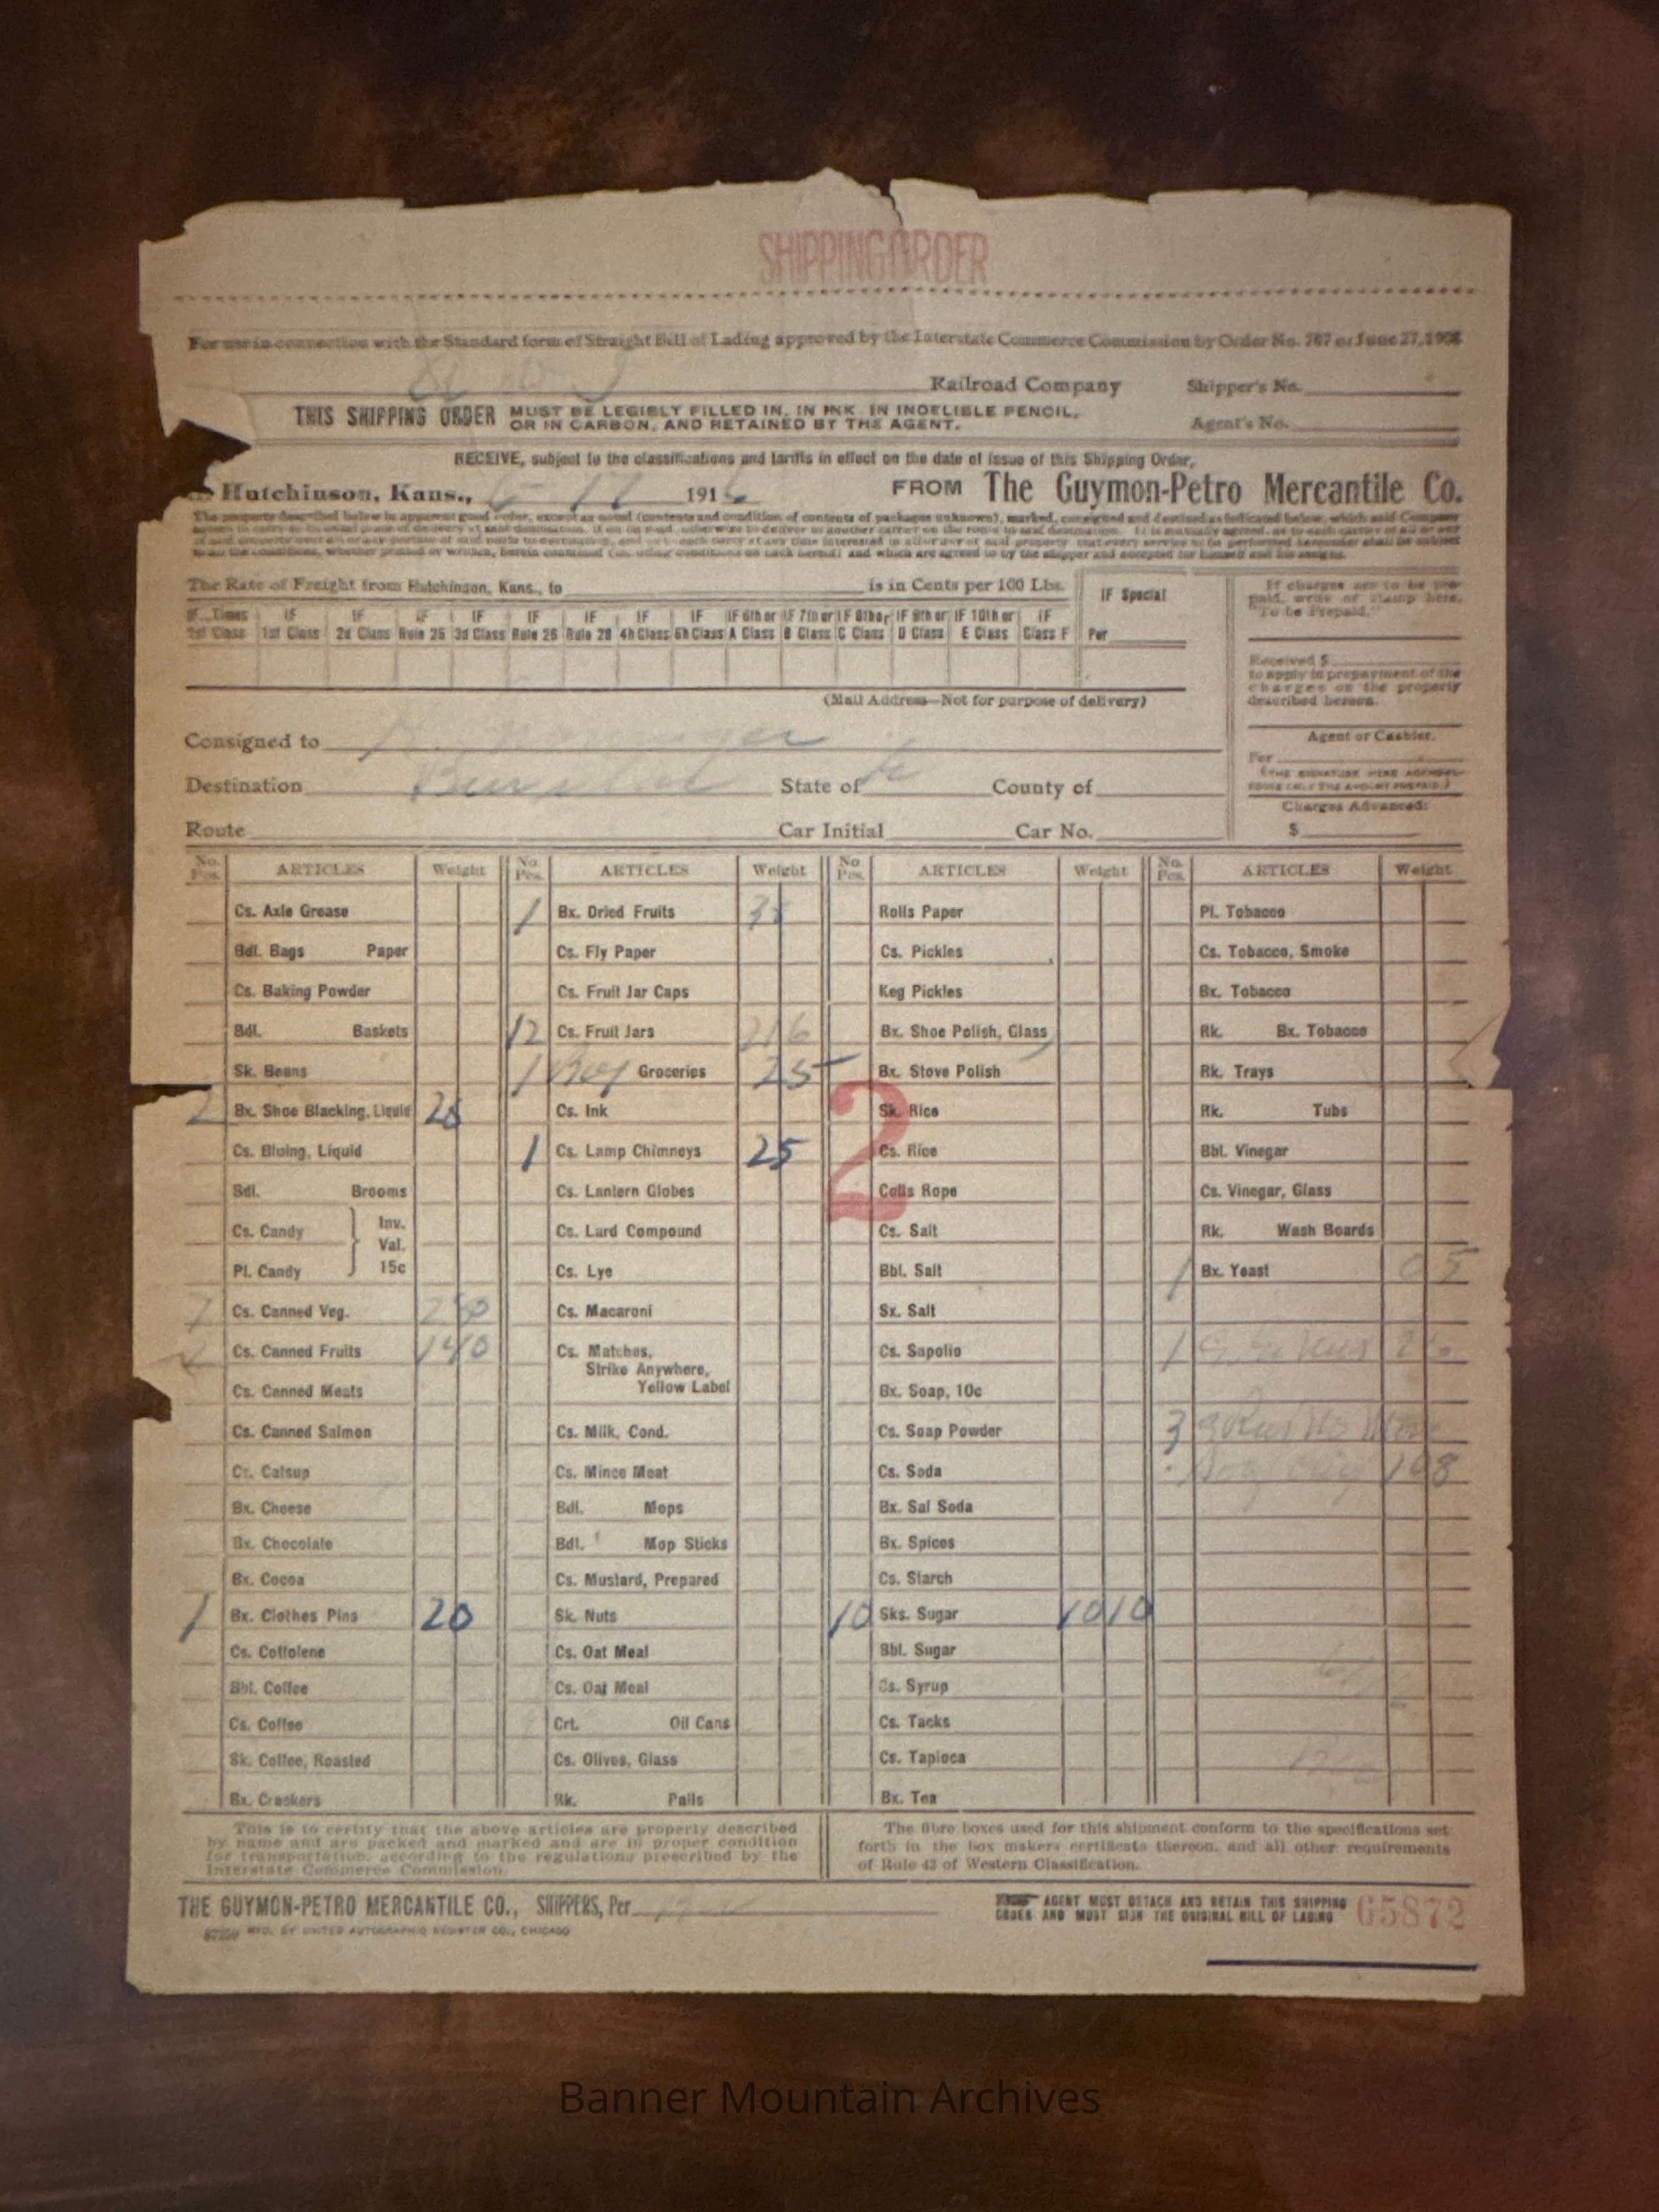 SHIPPING ORDER
For use in connection with the Standard form of Straight Bill of Lading approved by the Interstate Commerce Commission by Order No. 787 of June 27, 1908
Railroad Company Shipper's No.
THIS SHIPPING ORDER MUST BE LEGIBLY FILLED IN, IN INK, IN INDELIBLE PENCIL,
OR IN CARBON, AND RETAINED BY THE AGENT.
Agent's No.
RECEIVE, subject to the classifications and tariffs in effect on the date of issue of this Shipping Order,
Hutchinson, Kans., 191 FROM The Guymon-Petro Mercantile Co.
The property described below in apparent good order, except as noted (contents and condition of contents of packages unknown), marked, consigned and destined as indicated below, which said Company
The Rate of Freight from Hutchinson, Kans., to is in Cents per 100 Lbs.
IF Special
Per
IF Times 1st Class
IF 1st Class
IF 2d Class
IF Rule 25
IF 3d Class
IF Rule 26
IF Rule 28
IF 4h Class
IF 5h Class
IF 6th or A Class
IF 7th or B Class
IF 8th or C Class
IF 9th or D Class
IF 10th or E Class
IF Class F
If charges are to be pre-
paid, write or stamp here,
"To be Prepaid."
Received $
to apply in prepayment of the
charges on the property
described hereon.
Agent or Cashier.
Per
Charges Advanced:
$
(Mail Address—Not for purpose of delivery)
Consigned to
Destination State of County of
Route Car Initial Car No.
No. Pcs. ARTICLES Weight No. Pcs. ARTICLES Weight No. Pcs. ARTICLES Weight No. Pcs. ARTICLES Weight
Cs. Axle Grease
Bdl. Bags Paper
Cs. Baking Powder
Bdl. Baskets
Sk. Beans
2 Bx. Shoe Blacking, Liquid
Cs. Bluing, Liquid
Bdl. Brooms
Cs. Candy
Pl. Candy
Inv.
Val.
15c
7 Cs. Canned Veg.
Cs. Canned Fruits 140
Cs. Canned Meats
Cs. Canned Salmon
Cr. Catsup
Bx. Cheese
Bx. Chocolate
Bx. Cocoa
1 Bx. Clothes Pins 20
Cs. Cottolene
Bbl. Coffee
Cs. Coffee
Sk. Coffee, Roasted
Bx. Crackers
1 Bx. Dried Fruits
Cs. Fly Paper
Cs. Fruit Jar Caps
12 Cs. Fruit Jars 216
1 Groceries 25
Cs. Ink
1 Cs. Lamp Chimneys 25
Cs. Lantern Globes
Cs. Lard Compound
Cs. Lye
Cs. Macaroni
Cs. Matches,
Strike Anywhere,
Yellow Label
Cs. Milk, Cond.
Cs. Mince Meat
Bdl. Mops
Bdl. Mop Sticks
Cs. Mustard, Prepared
Sk. Nuts
Cs. Oat Meal
Cs. Oat Meal
Crt. Oil Cans
Cs. Olives, Glass
Rk. Pails
Rolls Paper
Cs. Pickles
Keg Pickles
Bx. Shoe Polish, Glass
Bx. Stove Polish
2
Sk. Rice
Cs. Rice
Coils Rope
Cs. Salt
Bbl. Salt
Sx. Salt
Cs. Sapolio
Bx. Soap, 10c
Cs. Soap Powder
Cs. Soda
Bx. Sal Soda
Bx. Spices
Cs. Starch
10 Sks. Sugar 1010
Bbl. Sugar
Cs. Syrup
Cs. Tacks
Cs. Tapioca
Bx. Tea
Pl. Tobacco
Cs. Tobacco, Smoke
Bx. Tobacco
Rk. Bx. Tobacco
Rk. Trays
Rk. Tubs
Bbl. Vinegar
Cs. Vinegar, Glass
Rk. Wash Boards
1 Bx. Yeast 05
1
3
108
This is to certify that the above articles are properly described
by name and are packed and marked and are in proper condition
for transportation, according to the regulations prescribed by the
Interstate Commerce Commission.
The fibre boxes used for this shipment conform to the specifications set
forth in the box makers certificate thereon, and all other requirements
of Rule 42 of Western Classification.
THE GUYMON-PETRO MERCANTILE CO., SHIPPERS, Per
AGENT MUST DETACH AND RETAIN THIS SHIPPING
ORDER AND MUST SIGN THE ORIGINAL BILL OF LADING
65872
MFG. BY UNITED AUTOGRAPHIC REGISTER CO., CHICAGO
Banner Mountain Archives